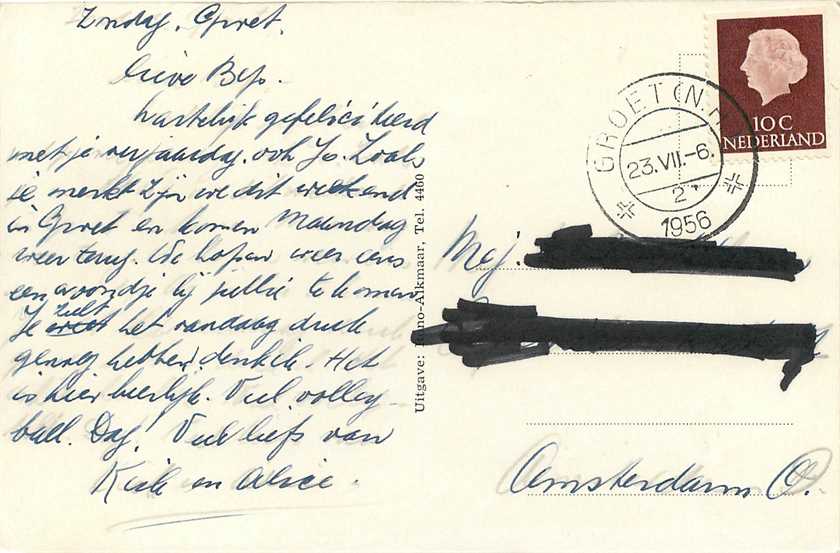 Zondag, Groet.
Lieve Bep.
hartelijk gefelici'teerd
met je verjaardag. ook Jo. Zoals
je merkt zijn we dit weekend
in Groet en komen Maandag
weer terug. We hopen weer eens
een avondje bij jullie te komen
Je zult het vandaag druk
genoeg hebben, denk ik. Het
is hier heerlijk. Veel volley-
ball. Dag! Veel liefs van
en Alice.
Uitgave: Alkmaar, Tel. 4460
GROET (N.H
23.VII.-6.
1956
10 C
NEDERLAND
Mej.
Amsterdam O.